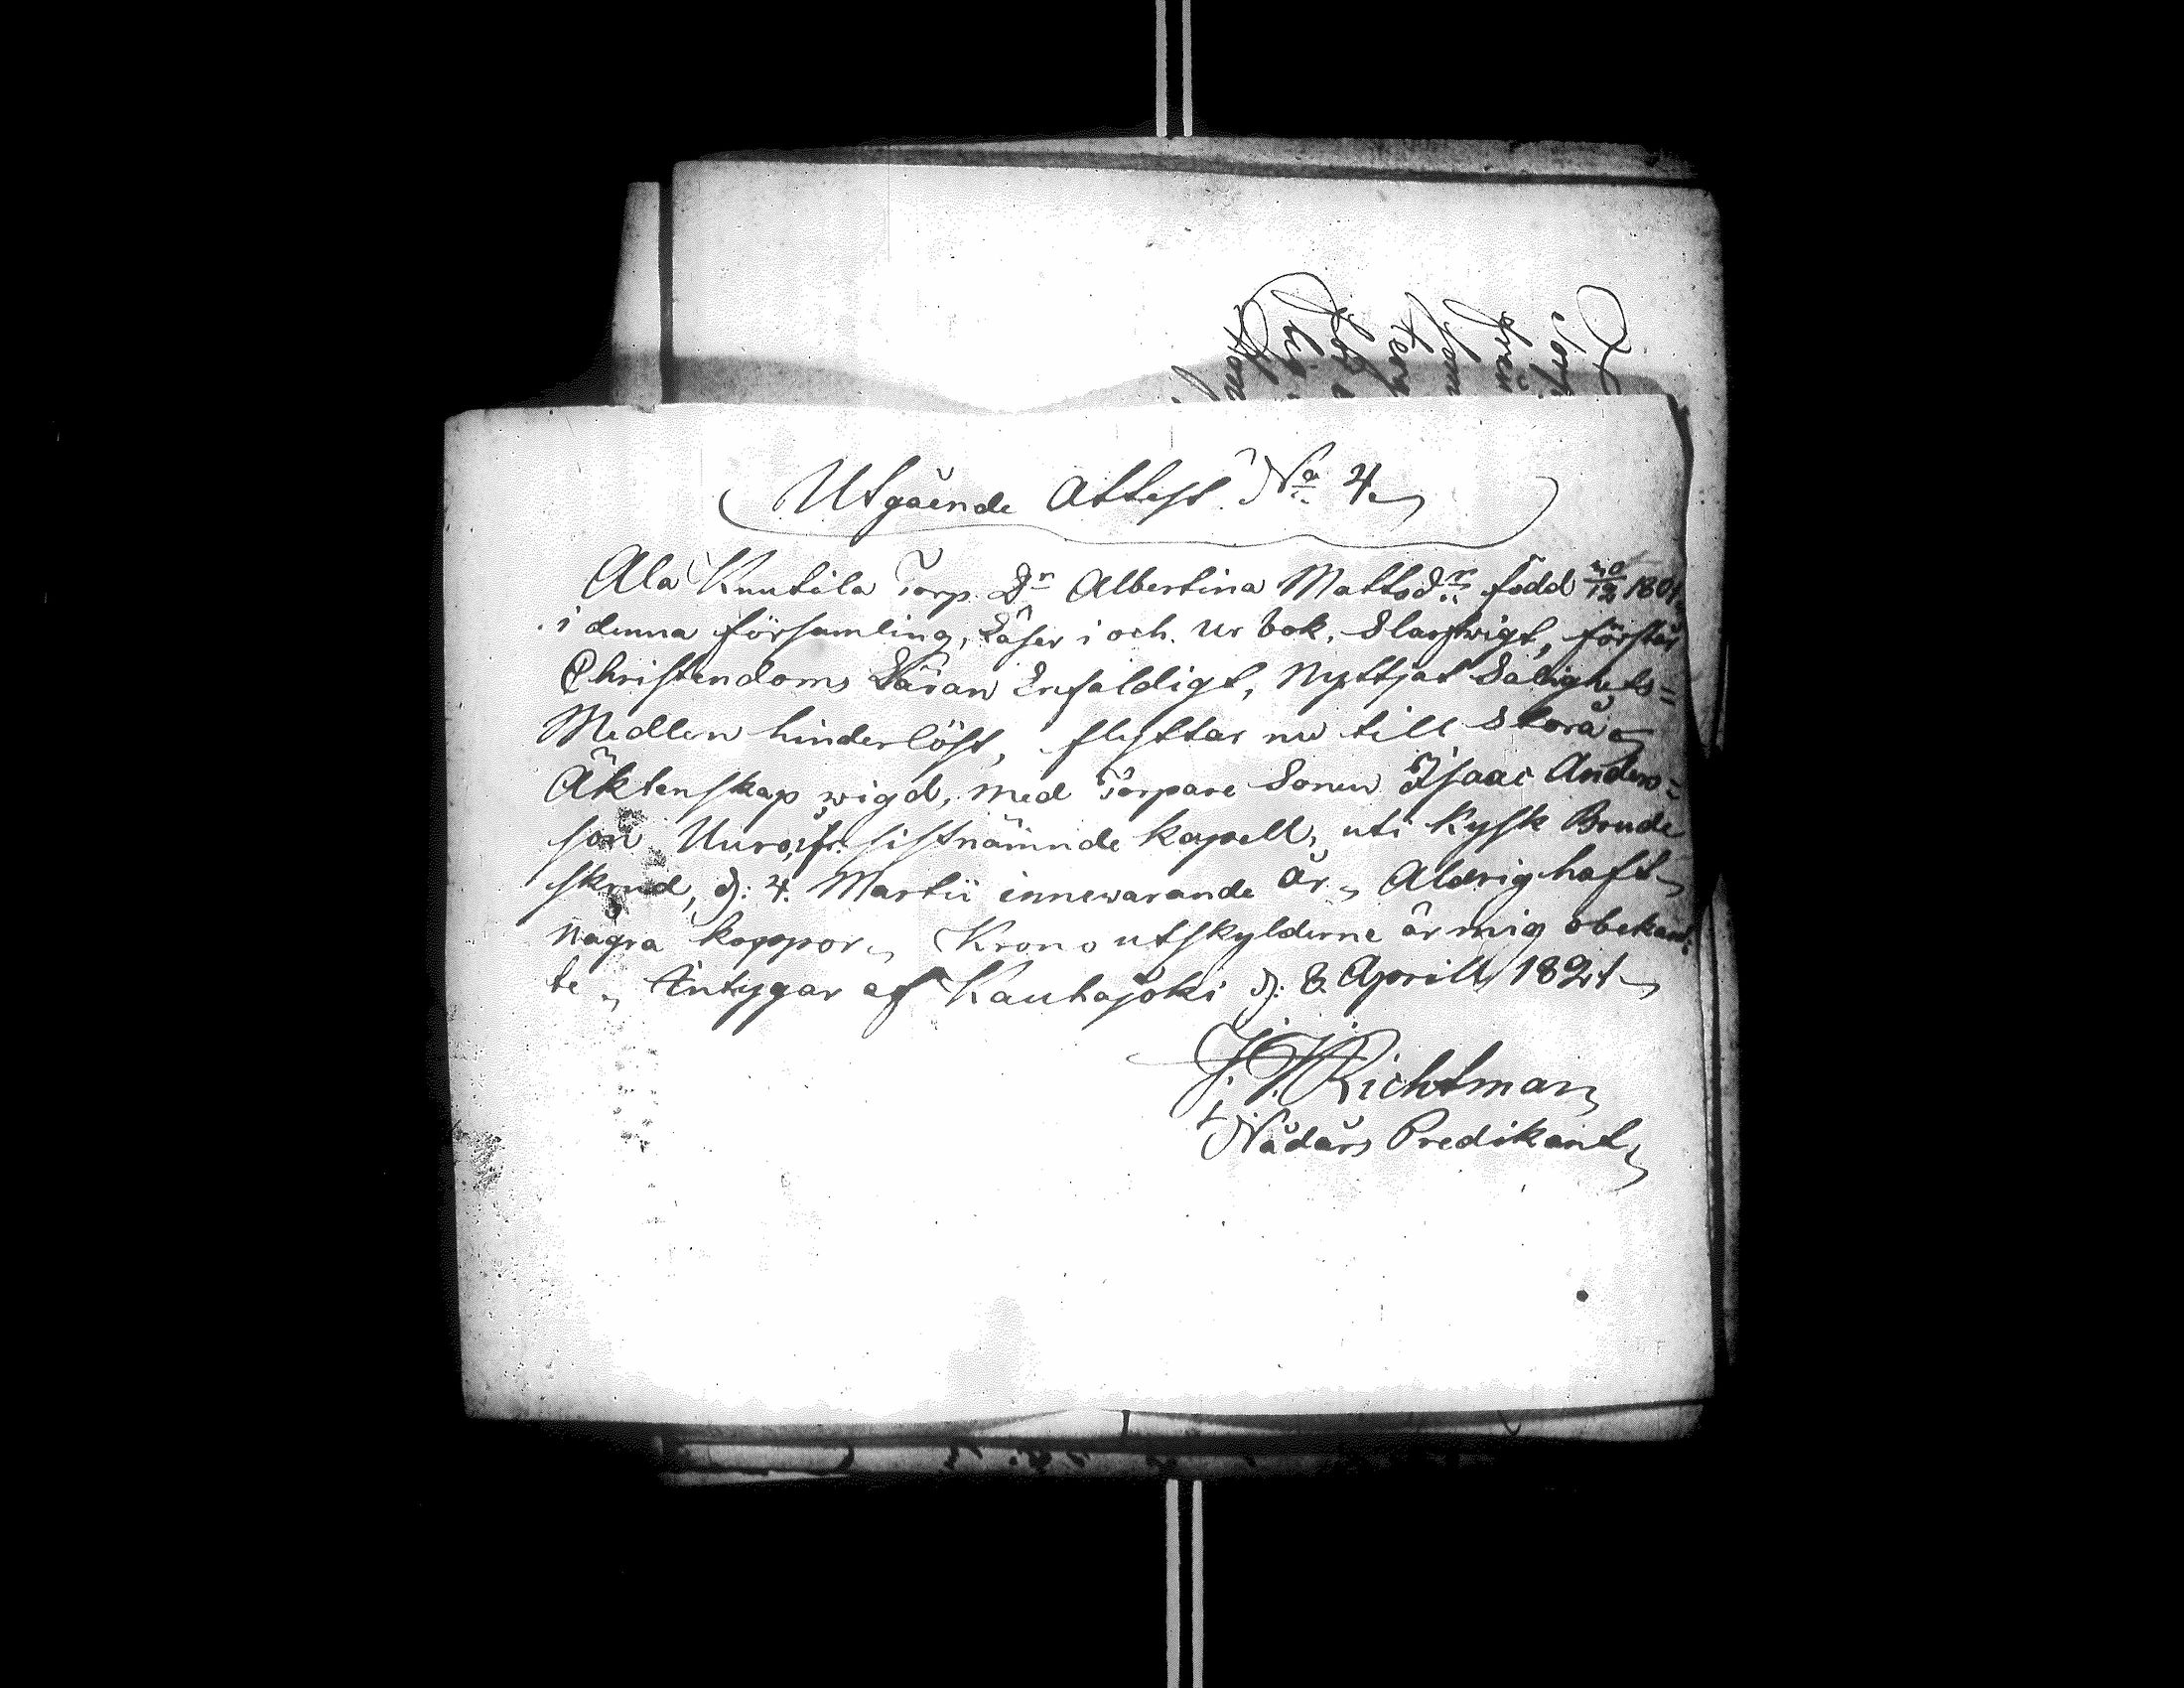 Utgående Attest No 4
Ala Knutila Torp. Dr Albertina Mattsdr född 1801
i denna församling, Läser i och ur bok, Slarfwigt, förstår
Christendoms Läran Enfaldigt, Nyttjat Salighets=
Medlen hinderlöst, flyttar nu till Storå
Äktenskap wigd, med Torpare Sonen Isaac Anders=
son sistnämnde kapell, uti Kysk Brude
skrud, d: 4. Martii innewarande år, Aldrig haft
några koppor, Krono utskylderne är mig obekant=
te, Intygar af Kauhajoki d: 8. Aprill 1821
J. Richtman
Nådårs Predikant